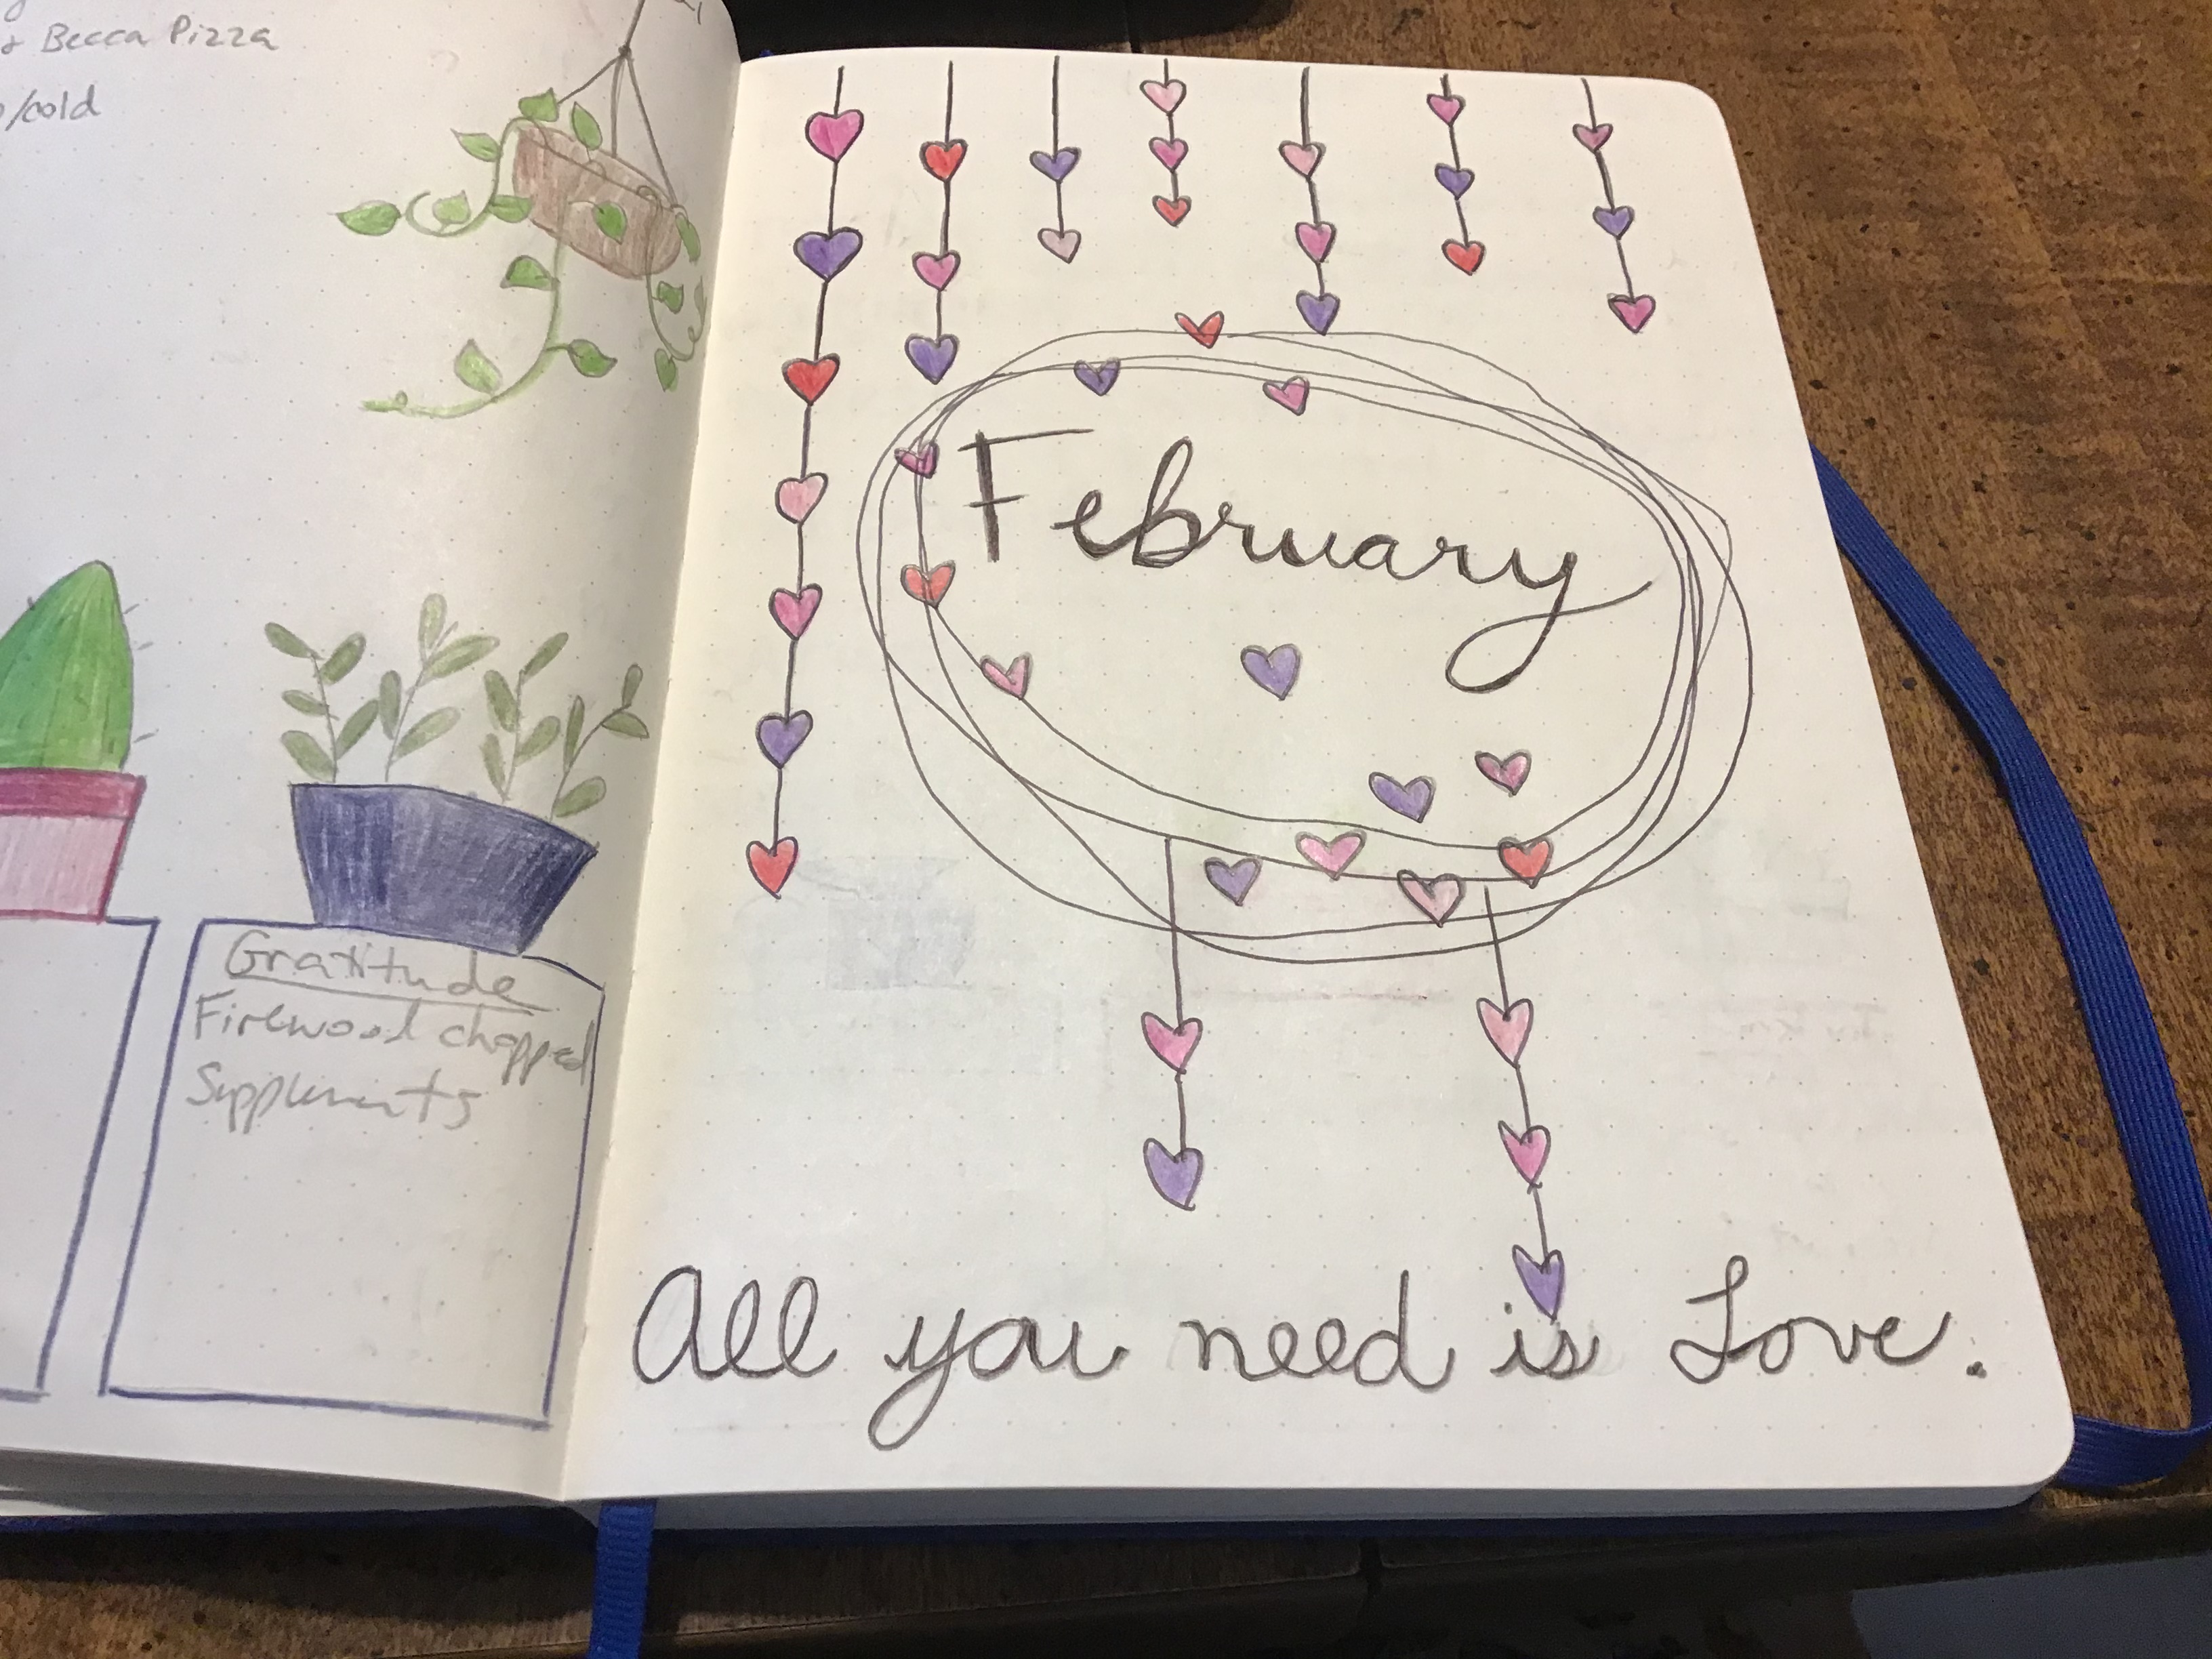 Becca Pizza
/cold
Gratitude
Firewood chopped
Supplements
February
All you need is Love.